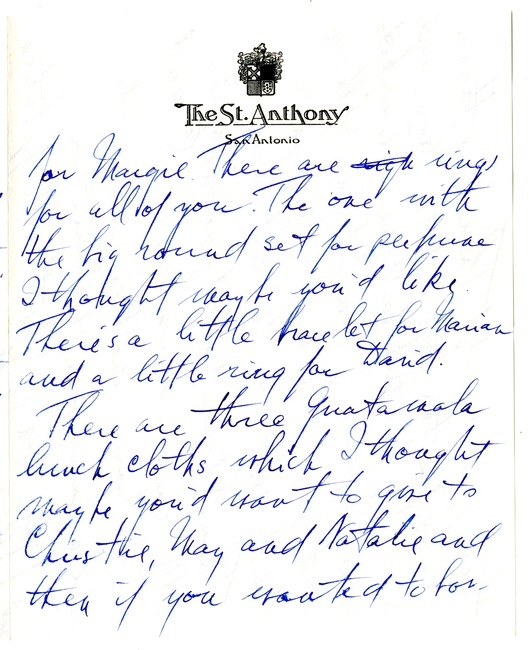 The St. Anthony
San Antonio
for Margie. There are rings
for all of you. The one with
the big round set for perfume
I thought maybe you'd like.
There's a little bracelet for Marian
and a little ring for David.
There are three Guatamala
lunch cloths which I thought
maybe you'd want to give to
Christie, May and Natalie and
then if you wanted to bor-